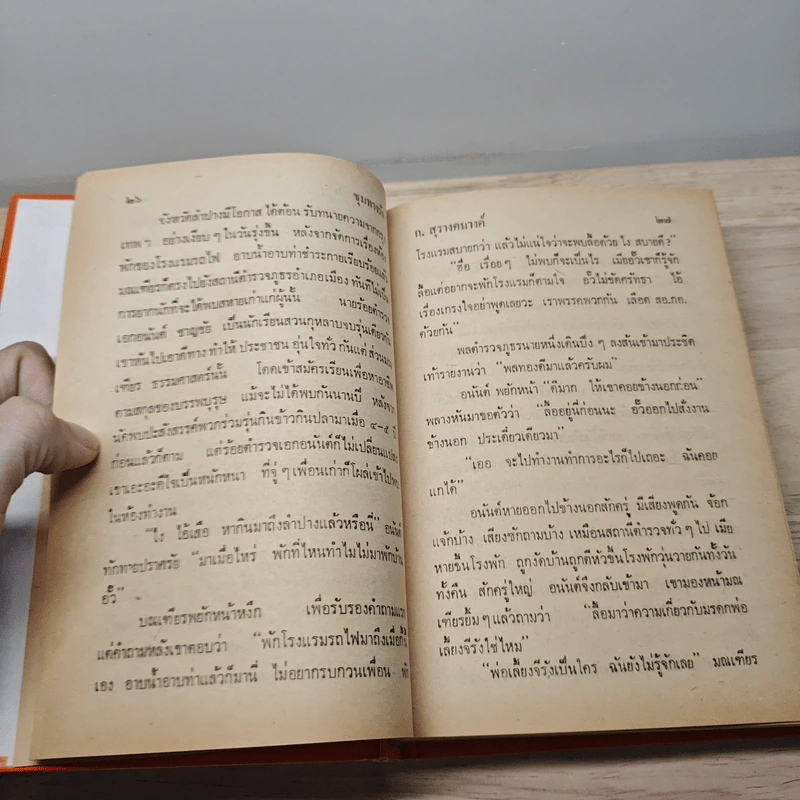 ๒๖
จังหวัดลำปางมีโอกาส ได้ต้อน รับทนายความจากกรุง
เทพฯ อย่างเงียบ ๆ ในวันรุ่งขึ้น หลังจากจัดการเรื่องห้อง
พักของโรงแรมรถไฟ อาบน้ำอาบท่าชำระกายเรียบร้อยแล้ว
มณเฑียรก็ตรงไปยังสถานีตำรวจภูธรอำเภอเมือง ทันทีไม่เป็น
การยากนักที่จะได้พบสหายเก่าแก่ผู้นั้น นายร้อยตำรวจ
เอกอนันต์ ชาญชัย เป็นนักเรียนสวนกุหลาบจบรุ่นเดียวกัน
เขาหันไปเอาดีทาง ทำให้ ประชาชน อุ่นใจทั่ว กันแต่ ส่วนมณ
เฑียร ธรรมศาสตร์นั้น โดดเข้าสมัครเรียนเพื่อหาอาชีพ
ตามสกุลของบรรพบุรุษ แม้จะไม่ได้พบกันนานปี หลังจาก
นัดพบประสังสรรค์พวกร่วมรุ่นกินข้าวกินปลามาเมื่อ ๔-๕ ปี
ก่อนแล้วก็ตาม แต่ร้อยตำรวจเอกอนันต์ก็ไม่เปลี่ยนแปลง
เขาเอะอะดีใจเป็นหนักหนา ที่จู่ ๆ เพื่อนเก่าก็โผล่เข้าไปพบ
ในห้องทำงาน
"ไง ไอ้เสือ หากินมาถึงลำปางแล้วหรือนี่" อนันต์
ทักทายปราศรัย "มาเมื่อไหร่ พักที่ไหนทำไมไม่มาพักบ้าน
อั๊ว"
มณเฑียรพยักหน้าหงึก เพื่อรับรองคำถามแรก
แต่คำถามหลังเขาตอบว่า "พักโรงแรมรถไฟมาถึงเมื่อกี้
เอง อาบน้ำอาบท่าแล้วก็มานี่ ไม่อยากรบกวนเพื่อน พัก
ก. สุรางคนางค์ ๒๗
โรงแรมสบายกว่า แล้วไม่แน่ใจว่าจะพบลื้อด้วย ไง สบายดี ?"
"ฮื่อ เรื่อย ๆ ไม่พบก็จะเป็นไร เมียอั๊วเขาก็รู้จัก
ลื้อแต่อยากจะพักโรงแรมก็ตามใจ อั๊วไม่ขัดศรัทธา ไอ้
เรื่องเกรงใจอย่าพูดเลยวะ เราพรรคพวกกัน เลือด สอ.กอ.
ด้วยกัน"
พลตำรวจภูธรนายหนึ่งเดินบึง ๆ ลงส้นเข้ามาประชิด
เท้ารายงานว่า "พลทองดีมาแล้วครับผม"
อนันต์ พยักหน้า "ดีมาก ให้เขาคอยข้างนอกก่อน"
พลางหันมาขอตัวว่า "ลื้ออยู่นี่ก่อนนะ อั๊วออกไปสั่งงาน
ข้างนอก ประเดี๋ยวเดียวมา"
"เออ จะไปทำงานทำการอะไรก็ไปเถอะ ฉันคอย
แกได้"
อนันต์หายออกไปข้างนอกสักครู่ มีเสียงพูดกัน จ้อก
แจ้กบ้าง เสียงซักถามบ้าง เหมือนสถานีตำรวจทั่ว ๆ ไป เมีย
หายขึ้นโรงพัก ถูกงัดบ้านถูกตีหัวขึ้นโรงพักวุ่นวายกันทั้งวัน
ทั้งคืน สักครู่ใหญ่ อนันต์จึงกลับเข้ามา เขามองหน้ามณ
เฑียรยิ้ม ๆ แล้วถามว่า "ลื้อมาว่าความเกี่ยวกับมรดกพ่อ
เลี้ยงจีรังใช่ไหม"
"พ่อเลี้ยงจีรังเป็นใคร ฉันยังไม่รู้จักเลย" มณเฑียร